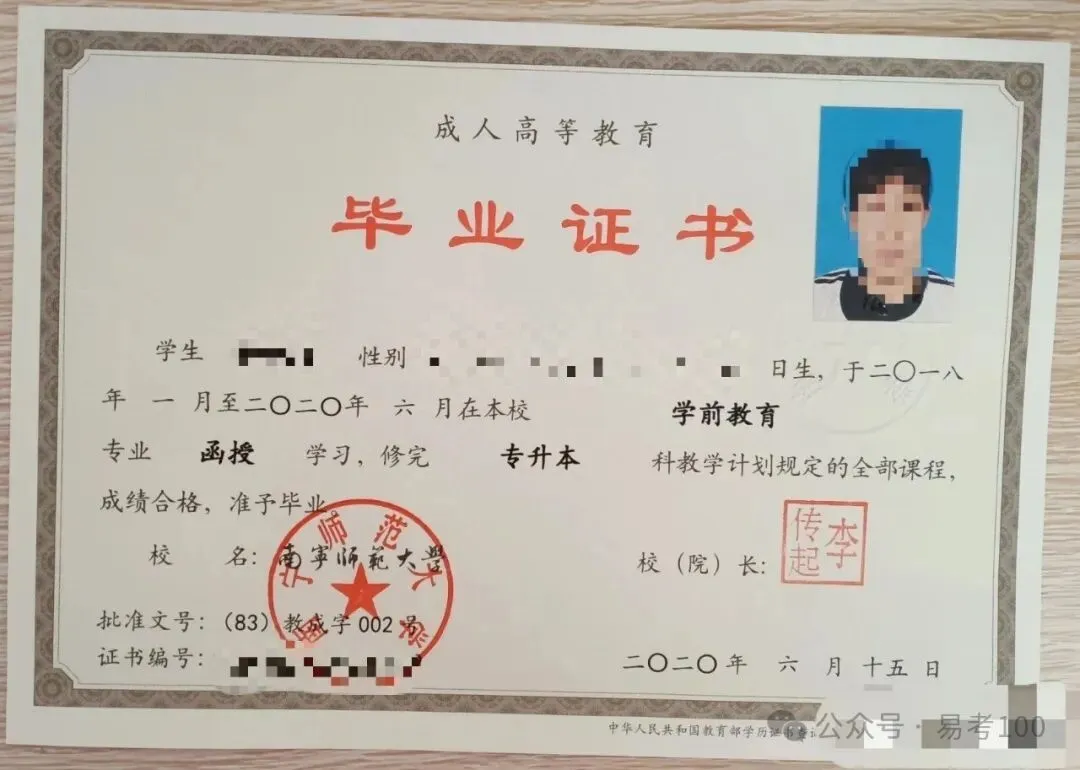 成人高等教育
毕业证书
学生 性别 日生，于二〇一八
年 一 月至二〇二〇年 六 月在本校 学前教育
专业 函授 学习，修完 专升本 科教学计划规定的全部课程，
成绩合格，准予毕业。
校 名：南宁师範大学
南宁师范大学
校（院）长：
李传起
批准文号：（83）教成字 002 号
证书编号：
二〇二〇年 六 月 十五 日
中华人民共和国教育部学历证书查
公众号·易考100